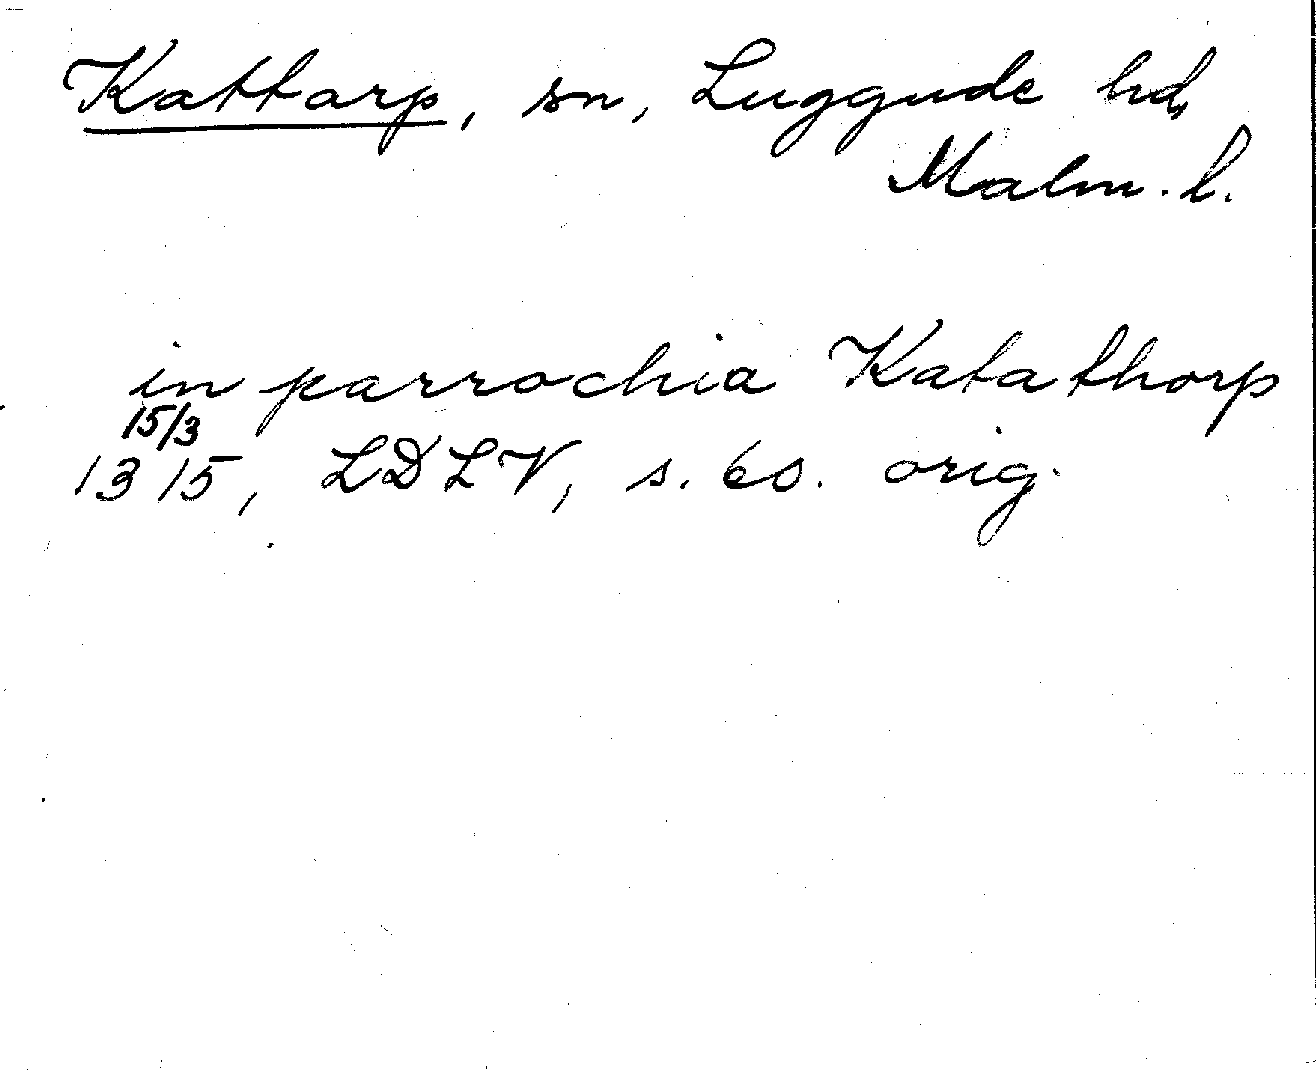 Kattarp, sn, Luggude hd,
Malm. l.
in parrochia Katathorp
15/3
1315, LDLV, s. 60. orig.